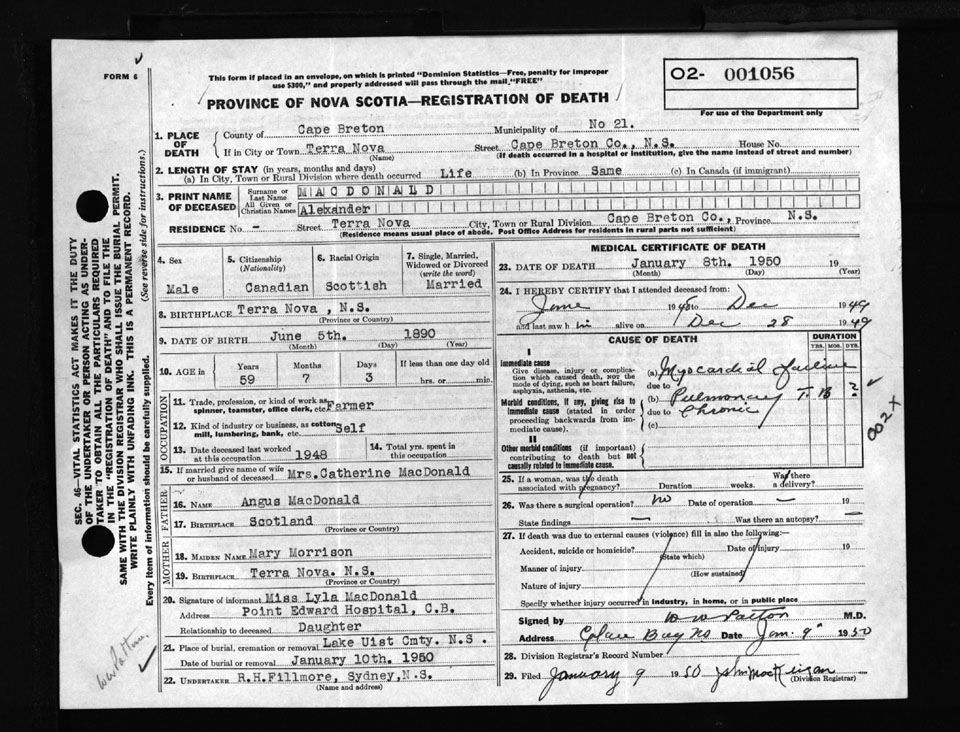 FORM 6
This form if placed in an envelope, on which is printed "Dominion Statistics—Free, penalty for improper
use $300," and properly addressed will pass through the mail "FREE"
PROVINCE OF NOVA SCOTIA—REGISTRATION OF DEATH
O2- 001056
For use of the Department only
SEC. 46—VITAL STATISTICS ACT MAKES IT THE DUTY
OF THE UNDERTAKER OR PERSON ACTING AS UNDER-
TAKER TO OBTAIN ALL THE PARTICULARS REQUIRED
IN THE "REGISTRATION OF DEATH" AND TO FILE THE
SAME WITH THE DIVISION REGISTRAR WHO SHALL ISSUE THE BURIAL PERMIT.
WRITE PLAINLY WITH UNFADING INK. THIS IS A PERMANENT RECORD.
Every item of information should be carefully supplied. (See reverse side for instructions.)
1. PLACE OF DEATH County of Cape Breton Municipality of No 21.
If in City or Town Terra Nova (Name) Street Cape Breton Co., N.S. House No.
(If death occurred in a hospital or institution, give the name instead of street and number)
2. LENGTH OF STAY (in years, months and days)
(a) In City, Town or Rural Division where death occurred Life (b) In Province Same (c) In Canada (if immigrant)
3. PRINT NAME OF DECEASED Surname or Last Name MACDONALD
All Given or Christian Names Alexander
RESIDENCE No. - Street Terra Nova City, Town or Rural Division Cape Breton Co., Province N.S.
(Residence means usual place of abode. Post Office Address for residents in rural parts not sufficient)
4. Sex Male
5. Citizenship (Nationality) Canadian
6. Racial Origin Scottish
7. Single, Married, Widowed or Divorced (write the word) Married
8. BIRTHPLACE Terra Nova , N.S.
(Province or Country)
9. DATE OF BIRTH June 5th. 1890
(Month) (Day) (Year)
10. AGE in Years 59 Months 7 Days 3 If less than one day old hrs. or min.
OCCUPATION
11. Trade, profession, or kind of work as
spinner, teamster, office clerk, etc. Farmer
12. Kind of industry or business, as cotton
mill, lumbering, bank, etc. Self
13. Date deceased last worked at this occupation 1948
14. Total yrs. spent in this occupation
15. If married give name of wife
or husband of deceased Mrs.Catherine MacDonald
FATHER
16. NAME Angus MacDonald
17. BIRTHPLACE Scotland
(Province or Country)
MOTHER
18. MAIDEN NAME Mary Morrison
19. BIRTHPLACE Terra Nova. N.S.
(Province or Country)
20. Signature of informant Miss Lyla MacDonald
Address Point Edward Hospital, C.B.
Relationship to deceased Daughter
21. Place of burial, cremation or removal Lake Uist Cmty. N.S .
Date of burial or removal January 10th. 1950
22. UNDERTAKER R.H.Fillmore, Sydney,N.S.
(Name and address)
MEDICAL CERTIFICATE OF DEATH
23. DATE OF DEATH January 8th. 1950 19
(Month) (Day) (Year)
24. I HEREBY CERTIFY that I attended deceased from:
June 1948 to Dec 1949
and last saw h im alive on Dec 28 1949
CAUSE OF DEATH
DURATION
YRS. MOS. DYS.
I
Immediate cause
Give disease, injury or complica-
tion which caused death, NOT the
mode of dying, such as heart failure,
asphyxia, asthenia, etc.
(a) Myocardial failure
due to
Morbid conditions, if any, giving rise to
immediate cause (stated in order
proceeding backwards from im-
mediate cause).
(b) Pulmonary T. B ?
due to Chronic
(c)
002 +
II
Other morbid conditions (if important)
contributing to death but not
causally related to immediate cause.
25. If a woman, was the death
associated with pregnancy? Duration weeks. Was there a delivery?
26. Was there a surgical operation? no Date of operation — 19
State findings — Was there an autopsy? —
27. If death was due to external causes (violence) fill in also the following:—
Accident, suicide or homicide? (State which) Date of injury 19
Manner of injury (How sustained)
Nature of injury
Specify whether injury occurred in industry, in home, or in public place
Signed by W W Patton M.D.
Address Glace Bay NS Date Jan. 9" 1950
28. Division Registrar's Record Number
29. Filed January 9 1950 (Division Registrar)